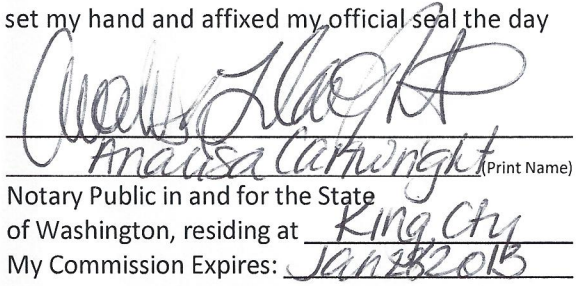 set my hand and affixed my official seal the day
Analisa Cartwright (Print Name)
Notary Public in and for the State
of Washington, residing at King Cty
My Commission Expires: Jan 28 2013